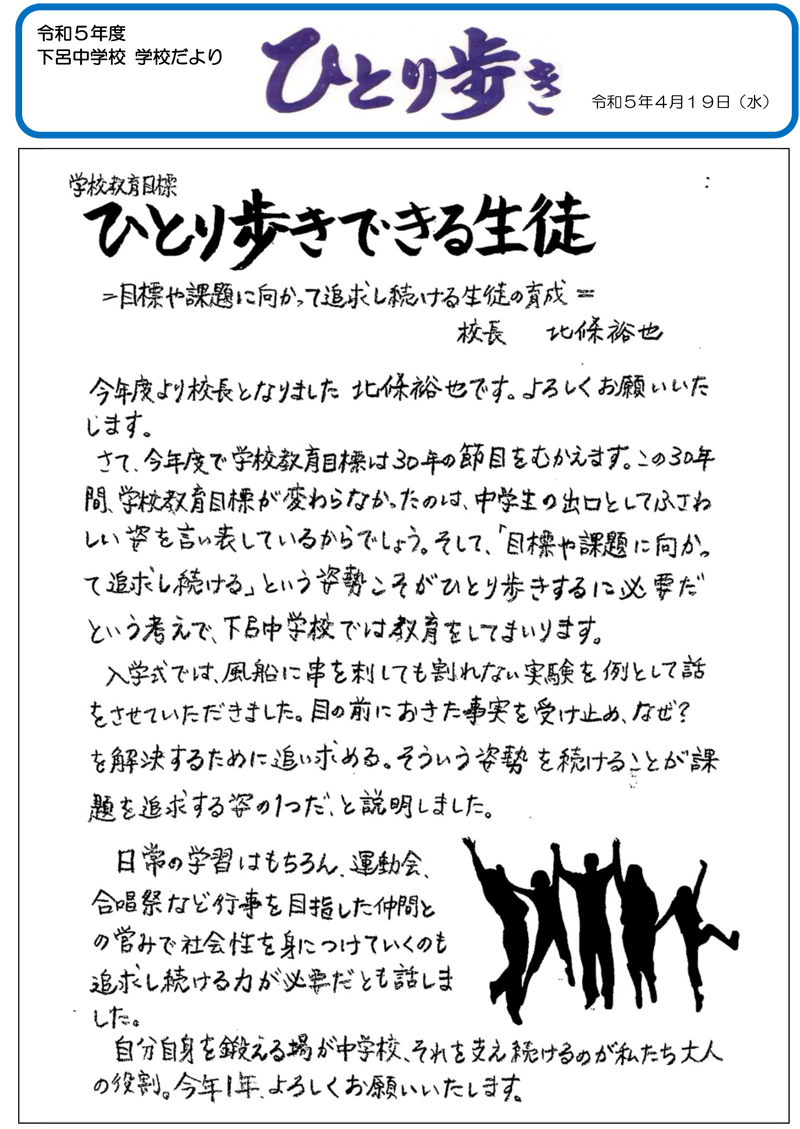 令和５年度
下呂中学校 学校だより
ひとり歩き
令和５年４月１９日（水）
学校教育目標
ひとり歩きできる生徒
=目標や課題に向かって追求し続ける生徒の育成=
校長　北條裕也
今年度より校長となりました 北條裕也です。よろしくお願いいた
します。
さて、今年度で学校教育目標は30年の節目をむかえます。この30年
間、学校教育目標が変わらなかったのは、中学生の出口としてふさわ
しい姿を言い表しているからでしょう。そして、「目標や課題に向かっ
て追求し続ける」という姿勢こそがひとり歩きするに必要だ
という考えで、下呂中学校では教育をしてまいります。
入学式では、風船に串を刺しても割れない実験を例として話
をさせていただきました。目の前におきた事実を受け止め、なぜ？
を解決するために追い求める。そういう姿勢を続けることが課
題を追求する姿の1つだ、と説明しました。
日常の学習はもちろん、運動会、
合唱祭など行事を目指した仲間と
の営みで社会性を身につけていくのも
追求し続ける力が必要だとも話しま
した。
自分自身を鍛える場が中学校、それを支え続けるのが私たち大人
の役割。今年1年、よろしくお願いいたします。